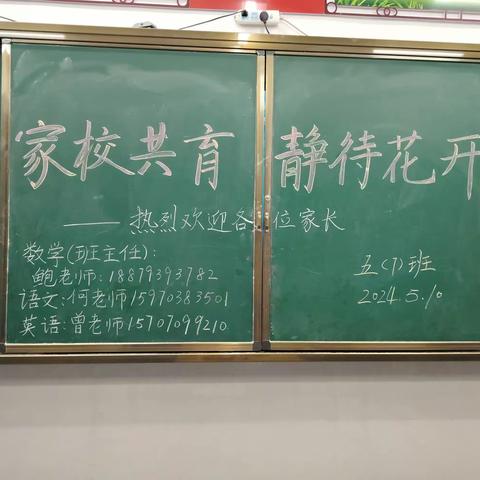 家校共育 静待花开
——热烈欢迎各位家长
数学(班主任):
鲍老师:18879393782
语文:何老师15970383501
英语:曾老师15707099210
五(1)班
2024.5.10